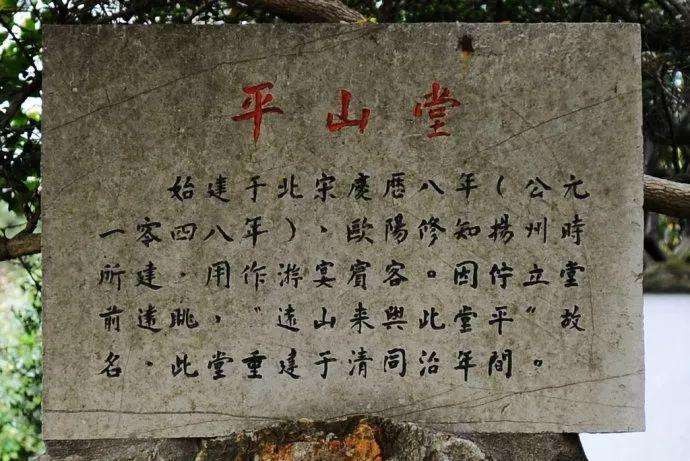 平山堂
始建于北宋慶曆八年(公元
一零四八年)、歐陽修知揚州時
所建.用作游宴賓客。因佇立堂
前遠眺,"遠山来與此堂平"故
名.此堂重建于清同治年間。